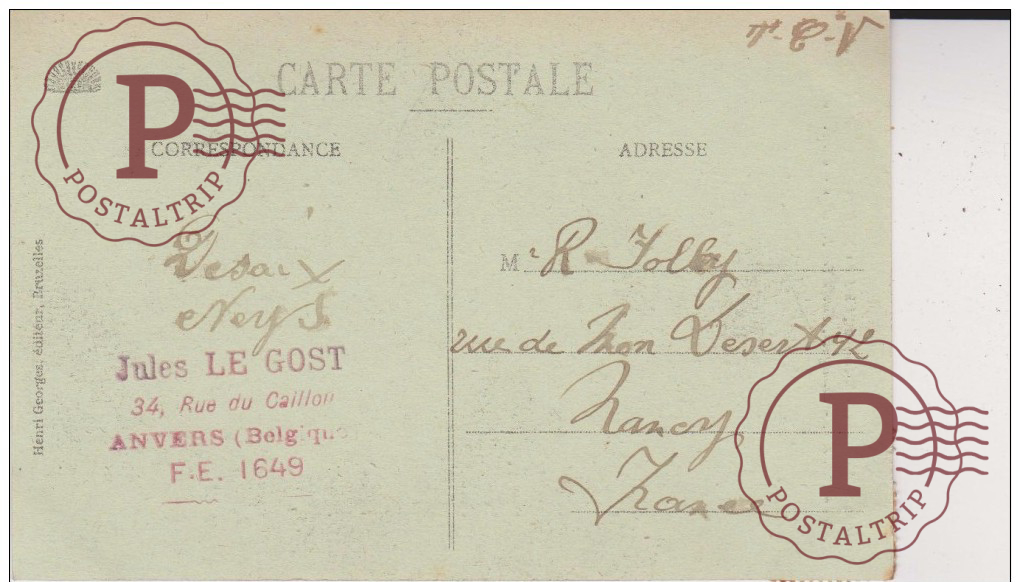 T.C.V
CARTE POSTALE
CORRESPONDANCE
ADRESSE
Henri Georges, éditeur, Bruxelles
Desaix
Neys
Jules LE GOST
34, Rue du Caillou
ANVERS (Belgique
F.E. 1649
Mr R Jolly
rue de Mon Desert 42
Nancy
France
P
POSTALTRIP
P
POSTALTRIP